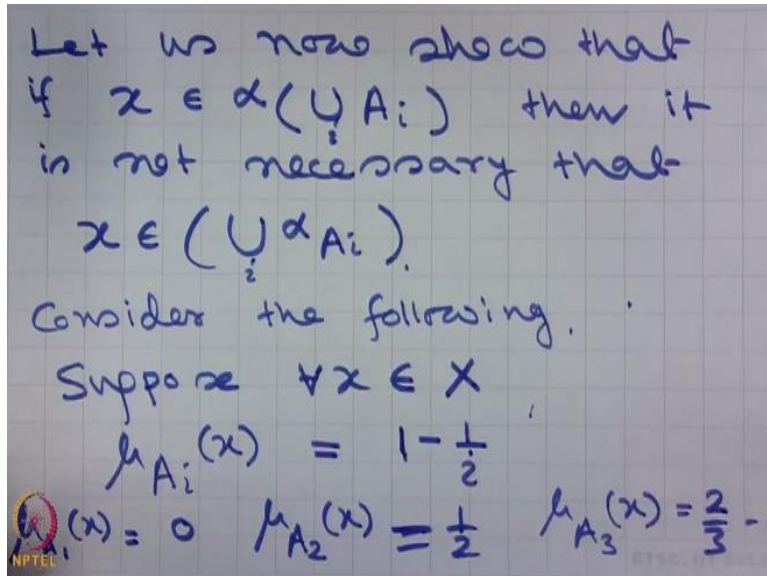 Let us now show that
if x ∈ α(∪ᵢ Aᵢ) then it
is not necessary that
x ∈ (∪ᵢ αAᵢ).
Consider the following.
Suppose ∀x ∈ X
μ_Aᵢ(x) = 1 - 1/i
μ_A₁(x) = 0 μ_A₂(x) = 1/2 μ_A₃(x) = 2/3 -
NPTEL